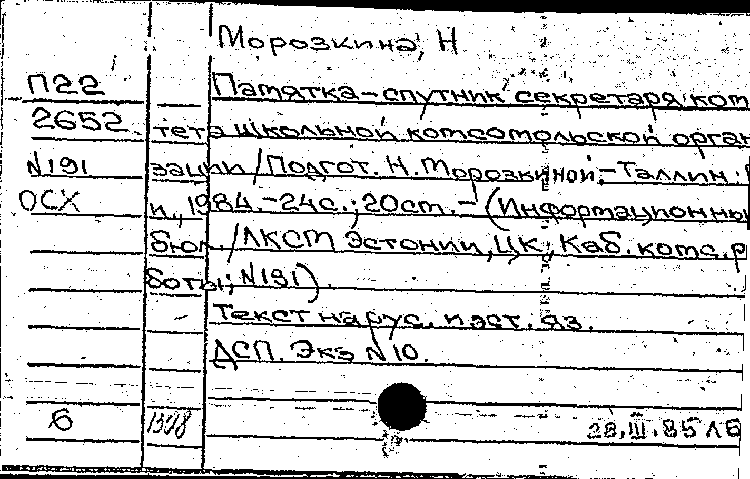 Морозкина, Н
П22 Памятка-спутник секретаря ком
2652 тета школьной комсомольской орган
N191 зации/Подгот. Н. Морозкиной.-Таллин:
ОСХ и., 1984.-24с.; 20см.-(Информационны
бюл./ЛКСМ Эстонии, ЦК, Каб. комс. р
боты; N191).
Текст на рус. и эст. яз.
ДСП. Экз N10.
б 28.III.85 ЛБ